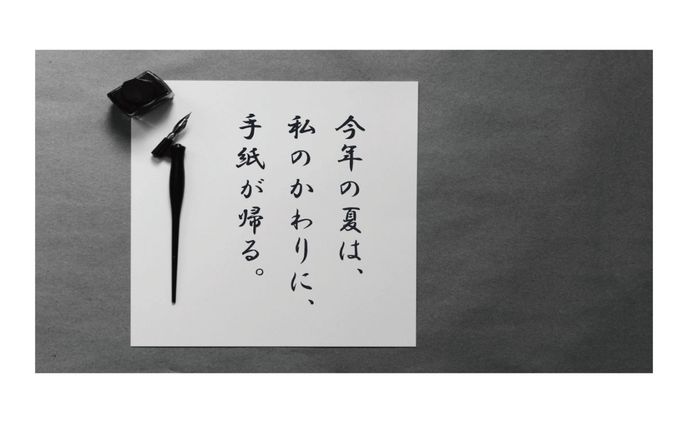 今年の夏は、
私のかわりに、
手紙が帰る。